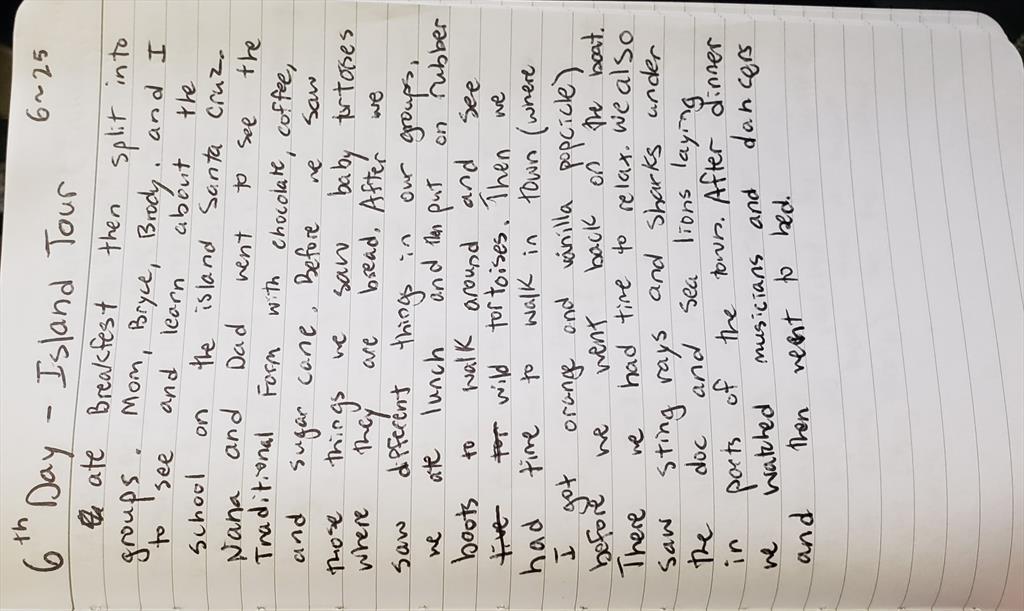 6th Day - Island Tour 6-25
ate Breakfest then split into
groups. Mom, Bryce, Brody, and I
to see and learn about the
school on the island Santa Cruz.
Nana and Dad went to see the
Traditional Farm with chocolate, coffee,
and sugar cane. Before we saw
those things we saw baby tortoises
where they are bread. After we
saw different things in our groups,
we ate lunch and then put on rubber
boots to walk around and see
live tor wild tortoises. Then we
had time to walk in town (where
I got orange and vanilla popcicle)
before we went back on the boat.
There we had time to relax. We also
saw sting rays and sharks under
the doc and sea lions laying
in parts of the town. After dinner
we watched musicians and dancers
and then went to bed.